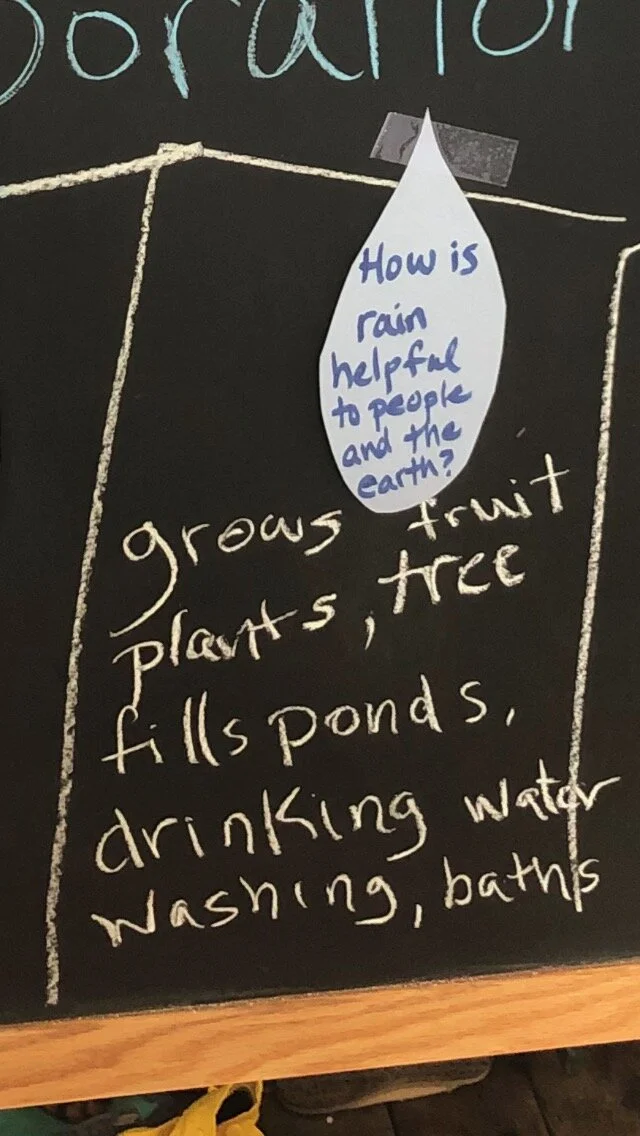 How is
rain
helpful
to people
and the
earth?
grows fruit
plants, tree
fills ponds,
drinking water
washing, baths